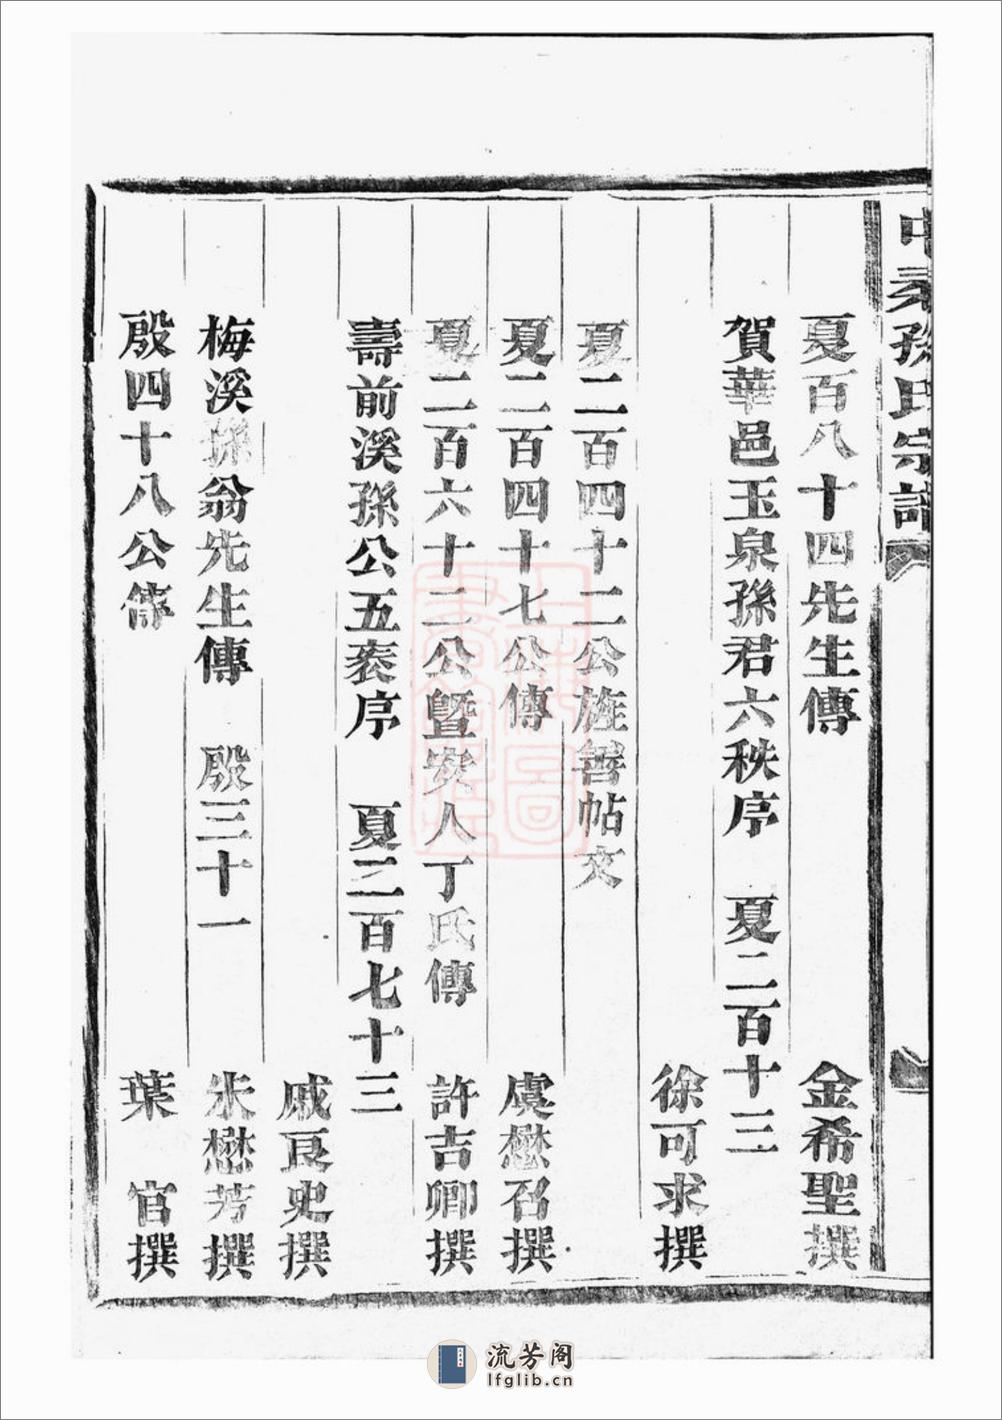 孫氏宗譜
夏百八十四先生傳 金希聖撰
賀華邑玉泉孫君六秩序 夏二百十三
徐可求撰
夏二百四十二公旌善帖文
夏二百四十七公傳 虞懋召撰
夏二百六十二公暨安人丁氏傳 許吉卿撰
壽前溪孫公五袠序 夏二百七十三
戚良史撰
梅溪孫翁先生傳 殷三十一 朱懋芳撰
殷四十八公傳 葉官撰
流芳阁
lfglib.cn